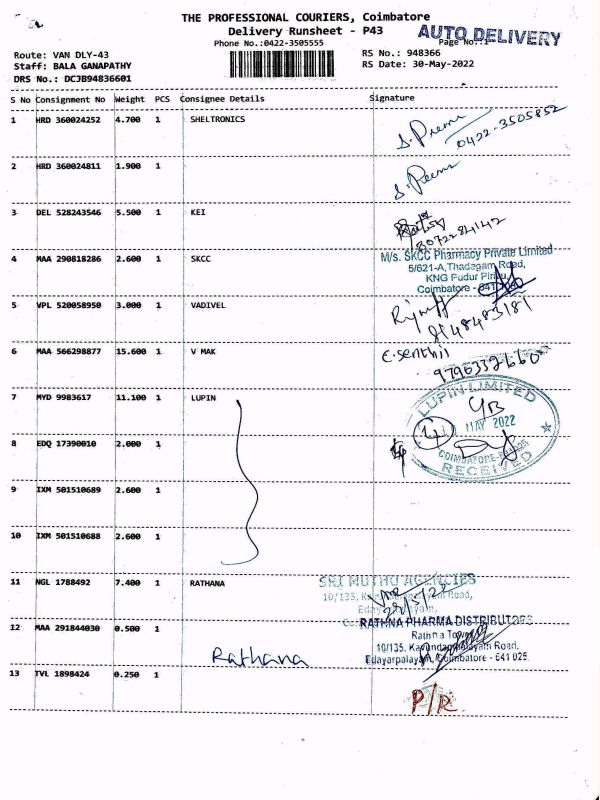 THE PROFESSIONAL COURIERS, Coimbatore
Delivery Runsheet - P43
AUTO DELIVERY
Phone No.:0422-3505555
Page No.:1
Route: VAN DLY-43
RS No.: 948366
Staff: BALA GANAPATHY
RS Date: 30-May-2022
DRS No.: DCJB94836601
S No Consignment No Weight PCS Consignee Details Signature
1 HRD 360024252 4.700 1 SHELTRONICS
S. Prema
0422-3505852
2 HRD 360024811 1.900 1
S. Prema
3 DEL 528243546 5.500 1 KEI
8072284142
4 MAA 290818286 2.600 1 SKCC
M/s. SKCC Pharmacy Private Limited
5/621-A, Thadagam Road,
KNG Pudur Pirivu,
Coimbatore - 641
5 VPL 520058950 3.000 1 VADIVEL
6 MAA 566298877 15.600 1 V MAK
E. Senthil
7 MYD 9983617 11.100 1 LUPIN
LUPIN LIMITED
MAY 2022
RECEIVED
8 EDQ 17390010 2.000 1
9 IXM 501510689 2.600 1
10 IXM 501510688 2.600 1
11 NGL 1788492 7.400 1 RATHANA
SRI MUTHU AGENCIES
10/135, Road,
12 MAA 291844030 0.500 1
RATHNA PHARMA DISTRIBUTORS
Rathna Tower
10/135, Kavundampalayam Road,
Edayarpalayam, Coimbatore - 641 025
Rathana
13 TVL 1898424 0.250 1
P/R